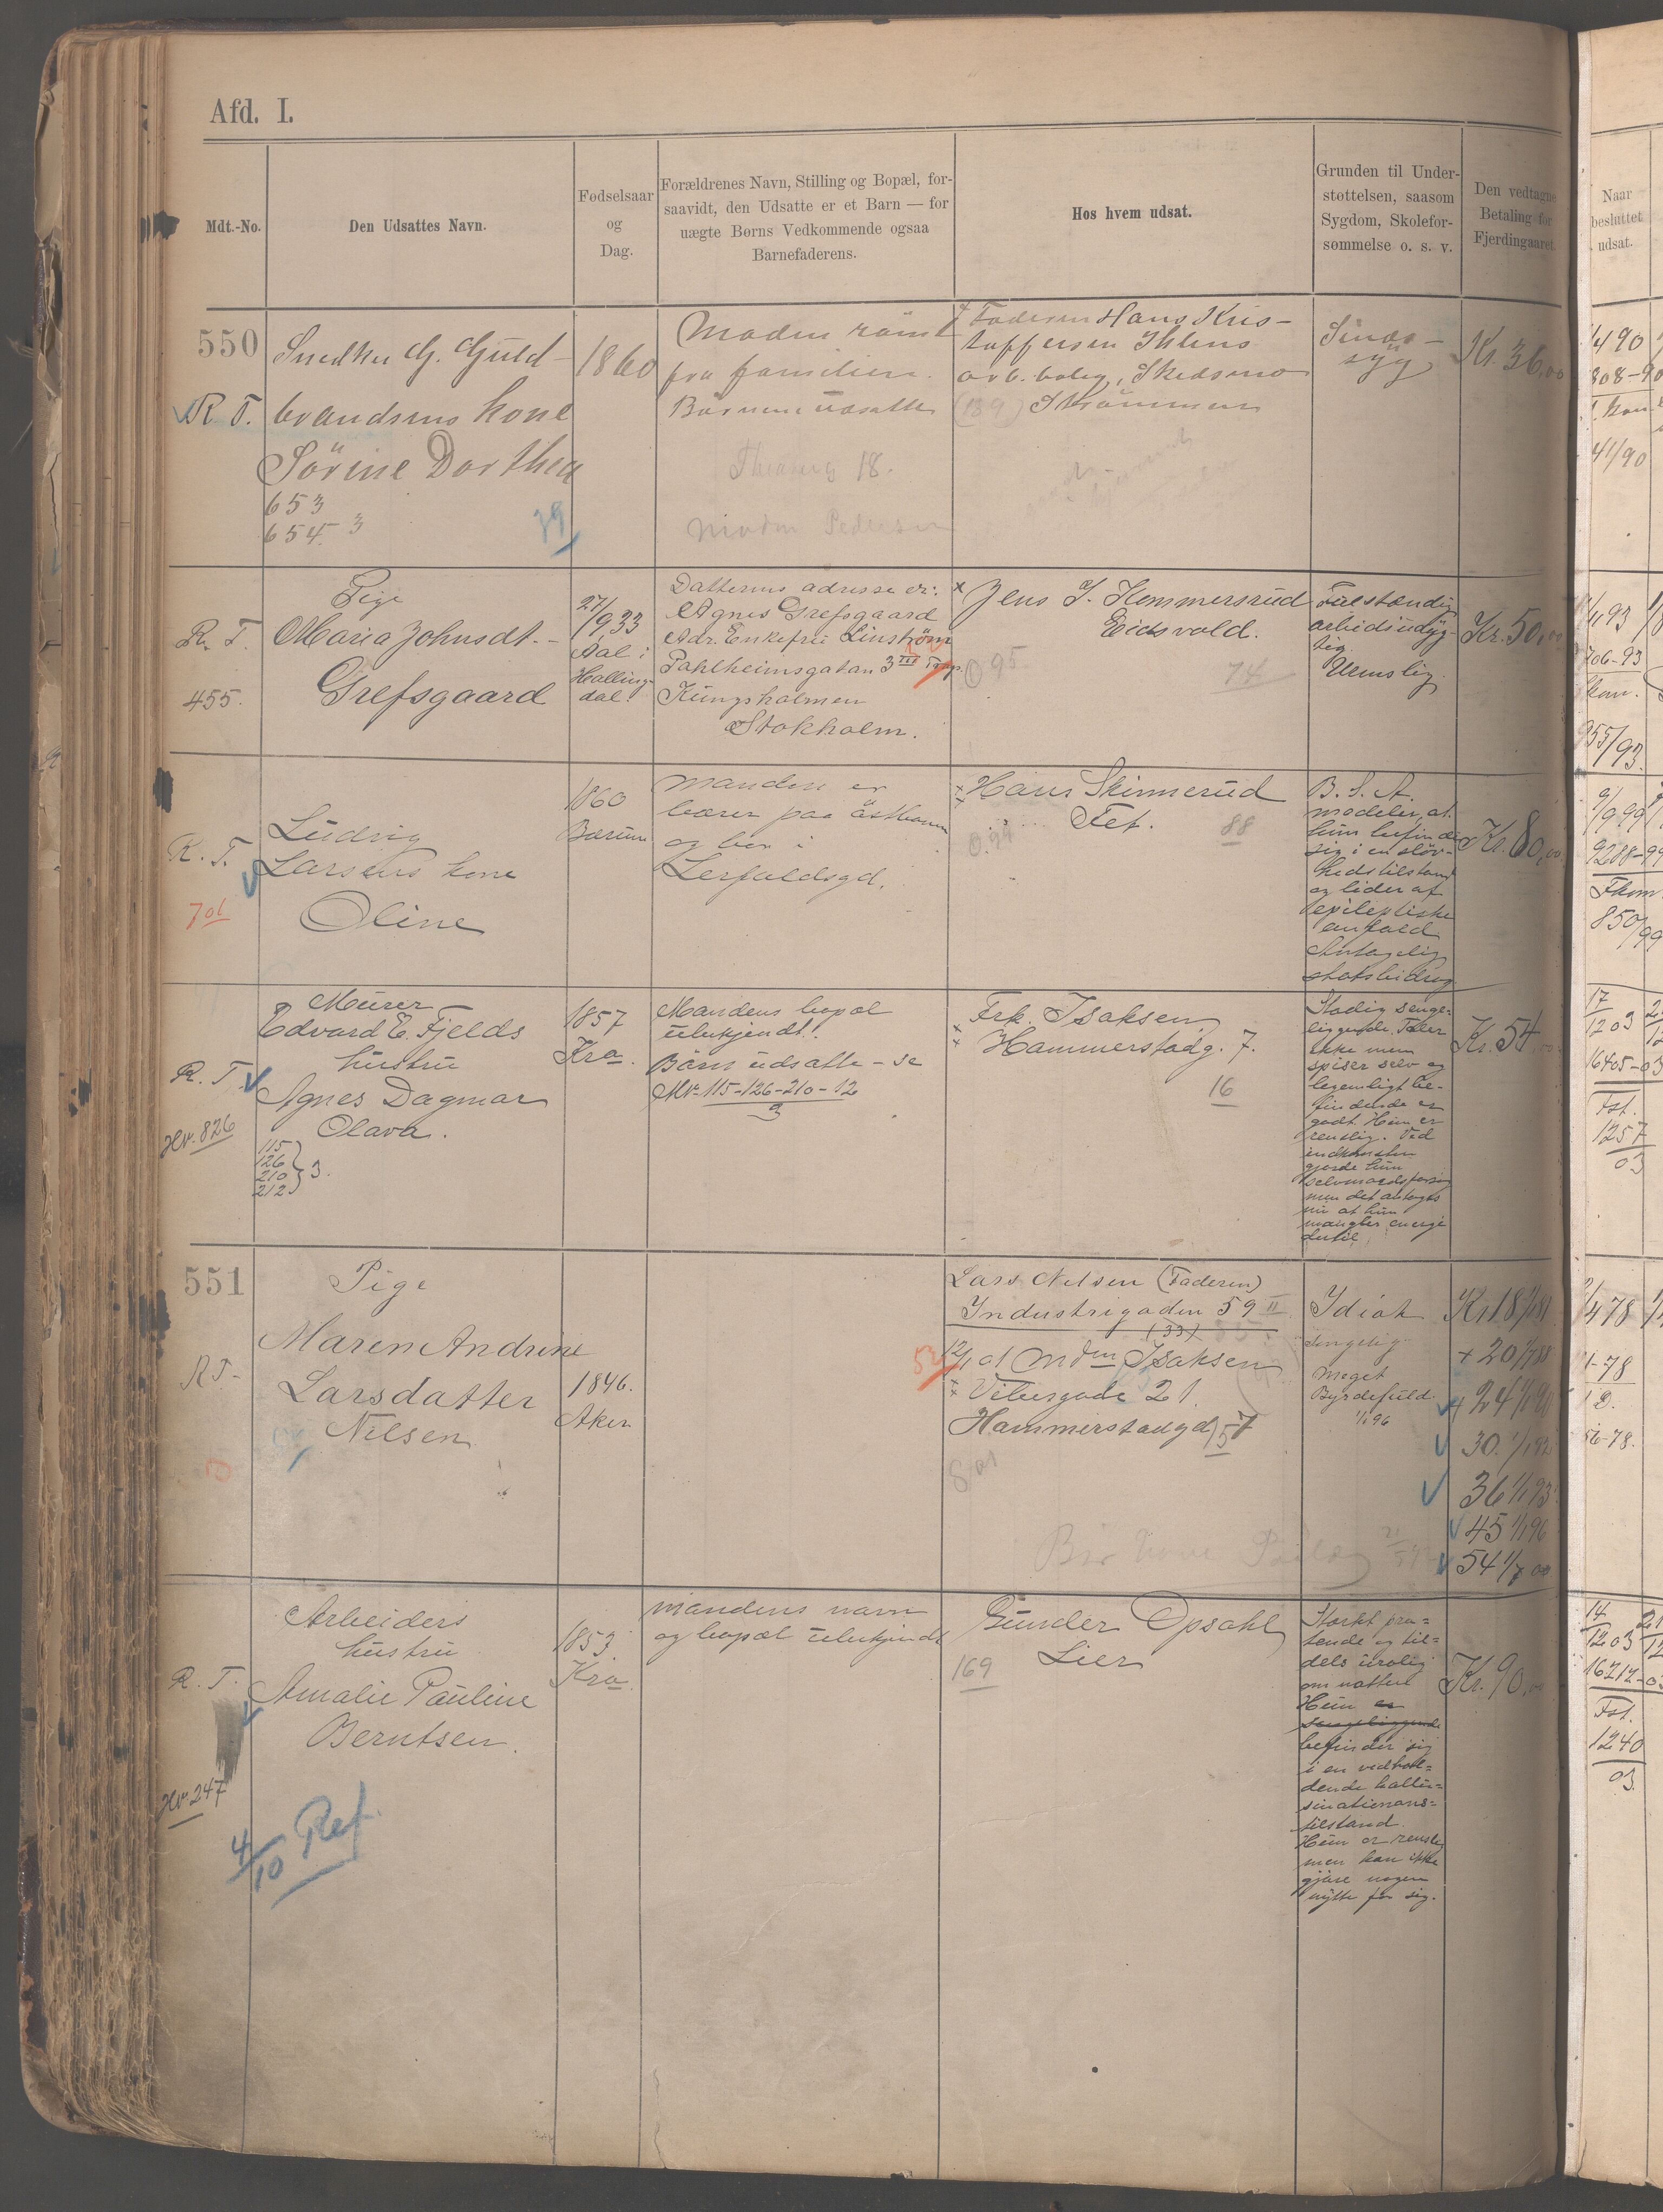 Afd. I.
Mdt.-No.
Den Udsattes Navn.
Fødselsaar
og
Dag.
Forældrenes Navn, Stilling og Bopæl, for-
saavidt, den Udsatte er et Barn — for
uægte Børns Vedkommende ogsaa
Barnefaderens.
Hos hvem udsat.
Grunden til Under-
støttelsen, saasom
Sygdom, Skolefor-
sømmelse o. s. v.
Den vedtagne
Betaling for
Fjerdingaaret.
Naar
besluttet
udsat.
550
R. T.
Snedker G. Guld-
brandsens kone
Sörine Dorthea
653
654 3
39
1860
Manden römt
fra familien.
Börnene udsatte
18.
Pedersen
Faderen Hans Kris-
toffersen Ihlens
arb. bolig, Skedsmo
(189) Strömmen
Sinds-
syg
Kr. 36,00
R. T.
455.
Pige
Maria Johnsdt.-
Grefsgaard
27/9 33
Aal i
Halling-
dal.
Datterens adresse er:
Agnes Grefsgaard
Adr. Enkefru Linström
Pahlheimsgatan 3 III Trap.
Kungsholmen
Stokholm.
x Jens J. Hammersrud
Eidsvold.
95
74
Fuldstændig
arbeidsudyg-
tig
Urenslig.
Kr. 50,00
R. T.
701
Ludvig
Larsens kone
Oline
1860
Bærum
Manden er
bærer paa östbanen
og bor i
Lerfaldsgd.
Hans Skinnerud
Fet.
88
B. S. A.
meddeler, at
hun befinder
sig i en slöv-
hedstilstand
og lider af
epileptiske
anfald
Antagelig
statsbidrag
Kr. 80,00
R. T.
Hv. 826
Murer
Edvard E. Fjelds
hustru
Agnes Dagmar
Olava.
115
126
210
212
3.
1857
Kra.
Mandens bopæl
ubekjendt!
Börn udsatte - se
Nr. 115-126-210-12
3
Frk. Isaksen
Hammerstadg. 7.
16
Stadig senge-
liggende. Taler
ikke men
spiser selv og
legemligt be-
findende er
godt. Hun er
renslig. Ved
indkomsten
gjorde hun
selvmordsforsög
men det antages
nu at hun
mangler energi
dertil.
Kr. 54,00
551
R T.
Pige
Maren Andrine
Larsdatter
Nilsen
1846.
Aker
Lars Nilsen (Faderen)
Industrigaden 59 II
(33)
12/1 01 Mdm Isaksen
Vibesgade 21.
Hammerstadgd 7
57
Idiot
Meget
Byrdefuld
1/1 96
Kr 18 1/1 81
+ 20 1/7 88
+ 24 1/1 90
30. 1/1 92
36 1/1 93
45 1/1 96
54 1/7 00
R. T.
Hv. 247
Arbeiders
hustru
Amalie Pauline
Berntsen.
4/10 Ref.
1853
Kra.
Mandens navn
og bopæl ubekjendt
Gunder Opsahl
Lier
169
Stærkt pra-
tende og til-
dels urolig
om natten
Hun er
sengeliggende
befinder sig
i en vedhol-
dende hallu-
sinations-
tilstand.
Hun er renslig
men kan ikke
gjöre nogen
nytte for sig.
Kr. 90,00